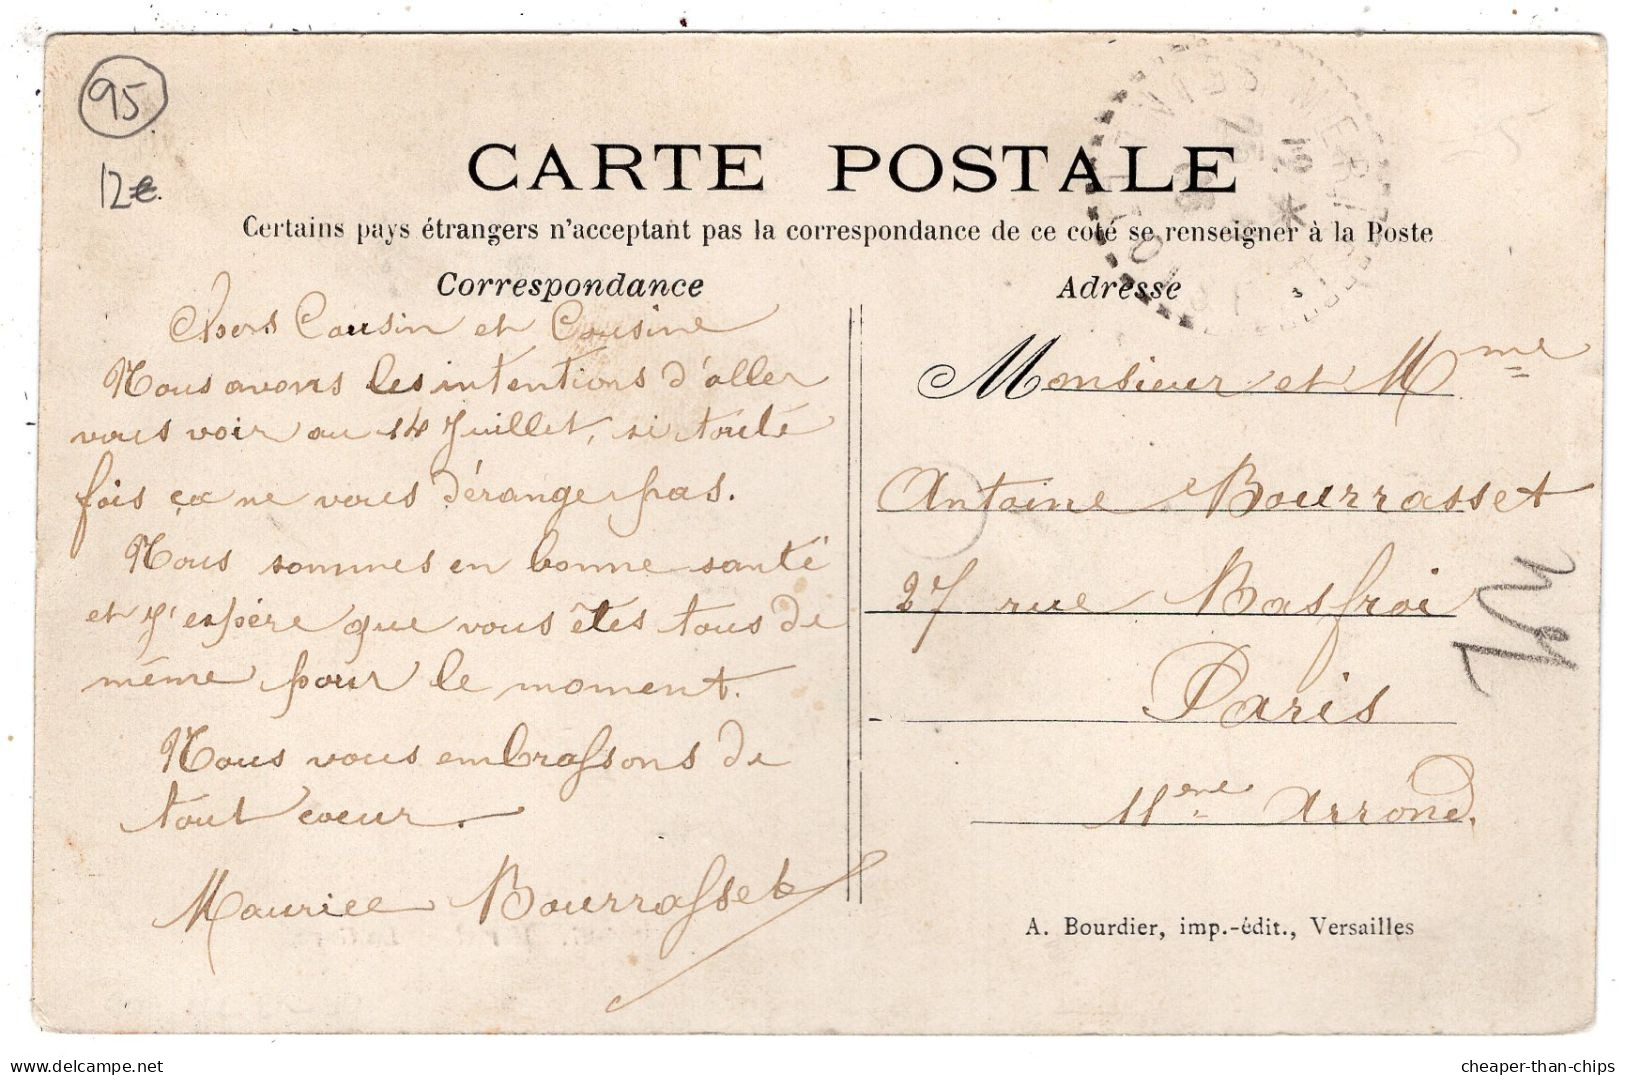 95
12€.
CARTE POSTALE
Certains pays étrangers n'acceptant pas la correspondance de ce coté se renseigner à la Poste
Correspondance
Chers Cousin et Cousine
Nous avons les intentions d'aller
vous voir au 14 Juillet, si toute
fois ça ne vous dérange pas.
Nous sommes en bonne santé
et J'espère que vous êtes tous de
même pour le moment.
Nous vous embrassons de
tout coeur.
Maurice Bourrasset
Adresse
Monsieur et Mme
Antoine Bourrasset
27 rue Basfroi
Paris
11ene Arrond.
A. Bourdier, imp.-édit., Versailles
cheaper-than-chips